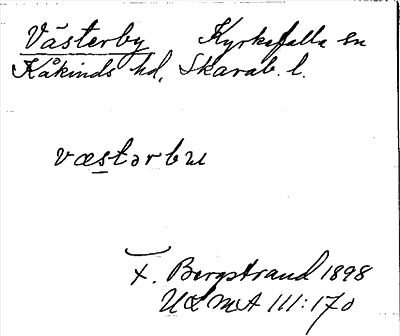 Västerby Kyrkefalla sn
Kåkinds hd, Skarab. l.
væstərbu
F. Bergstrand 1898
ULMA 111:170